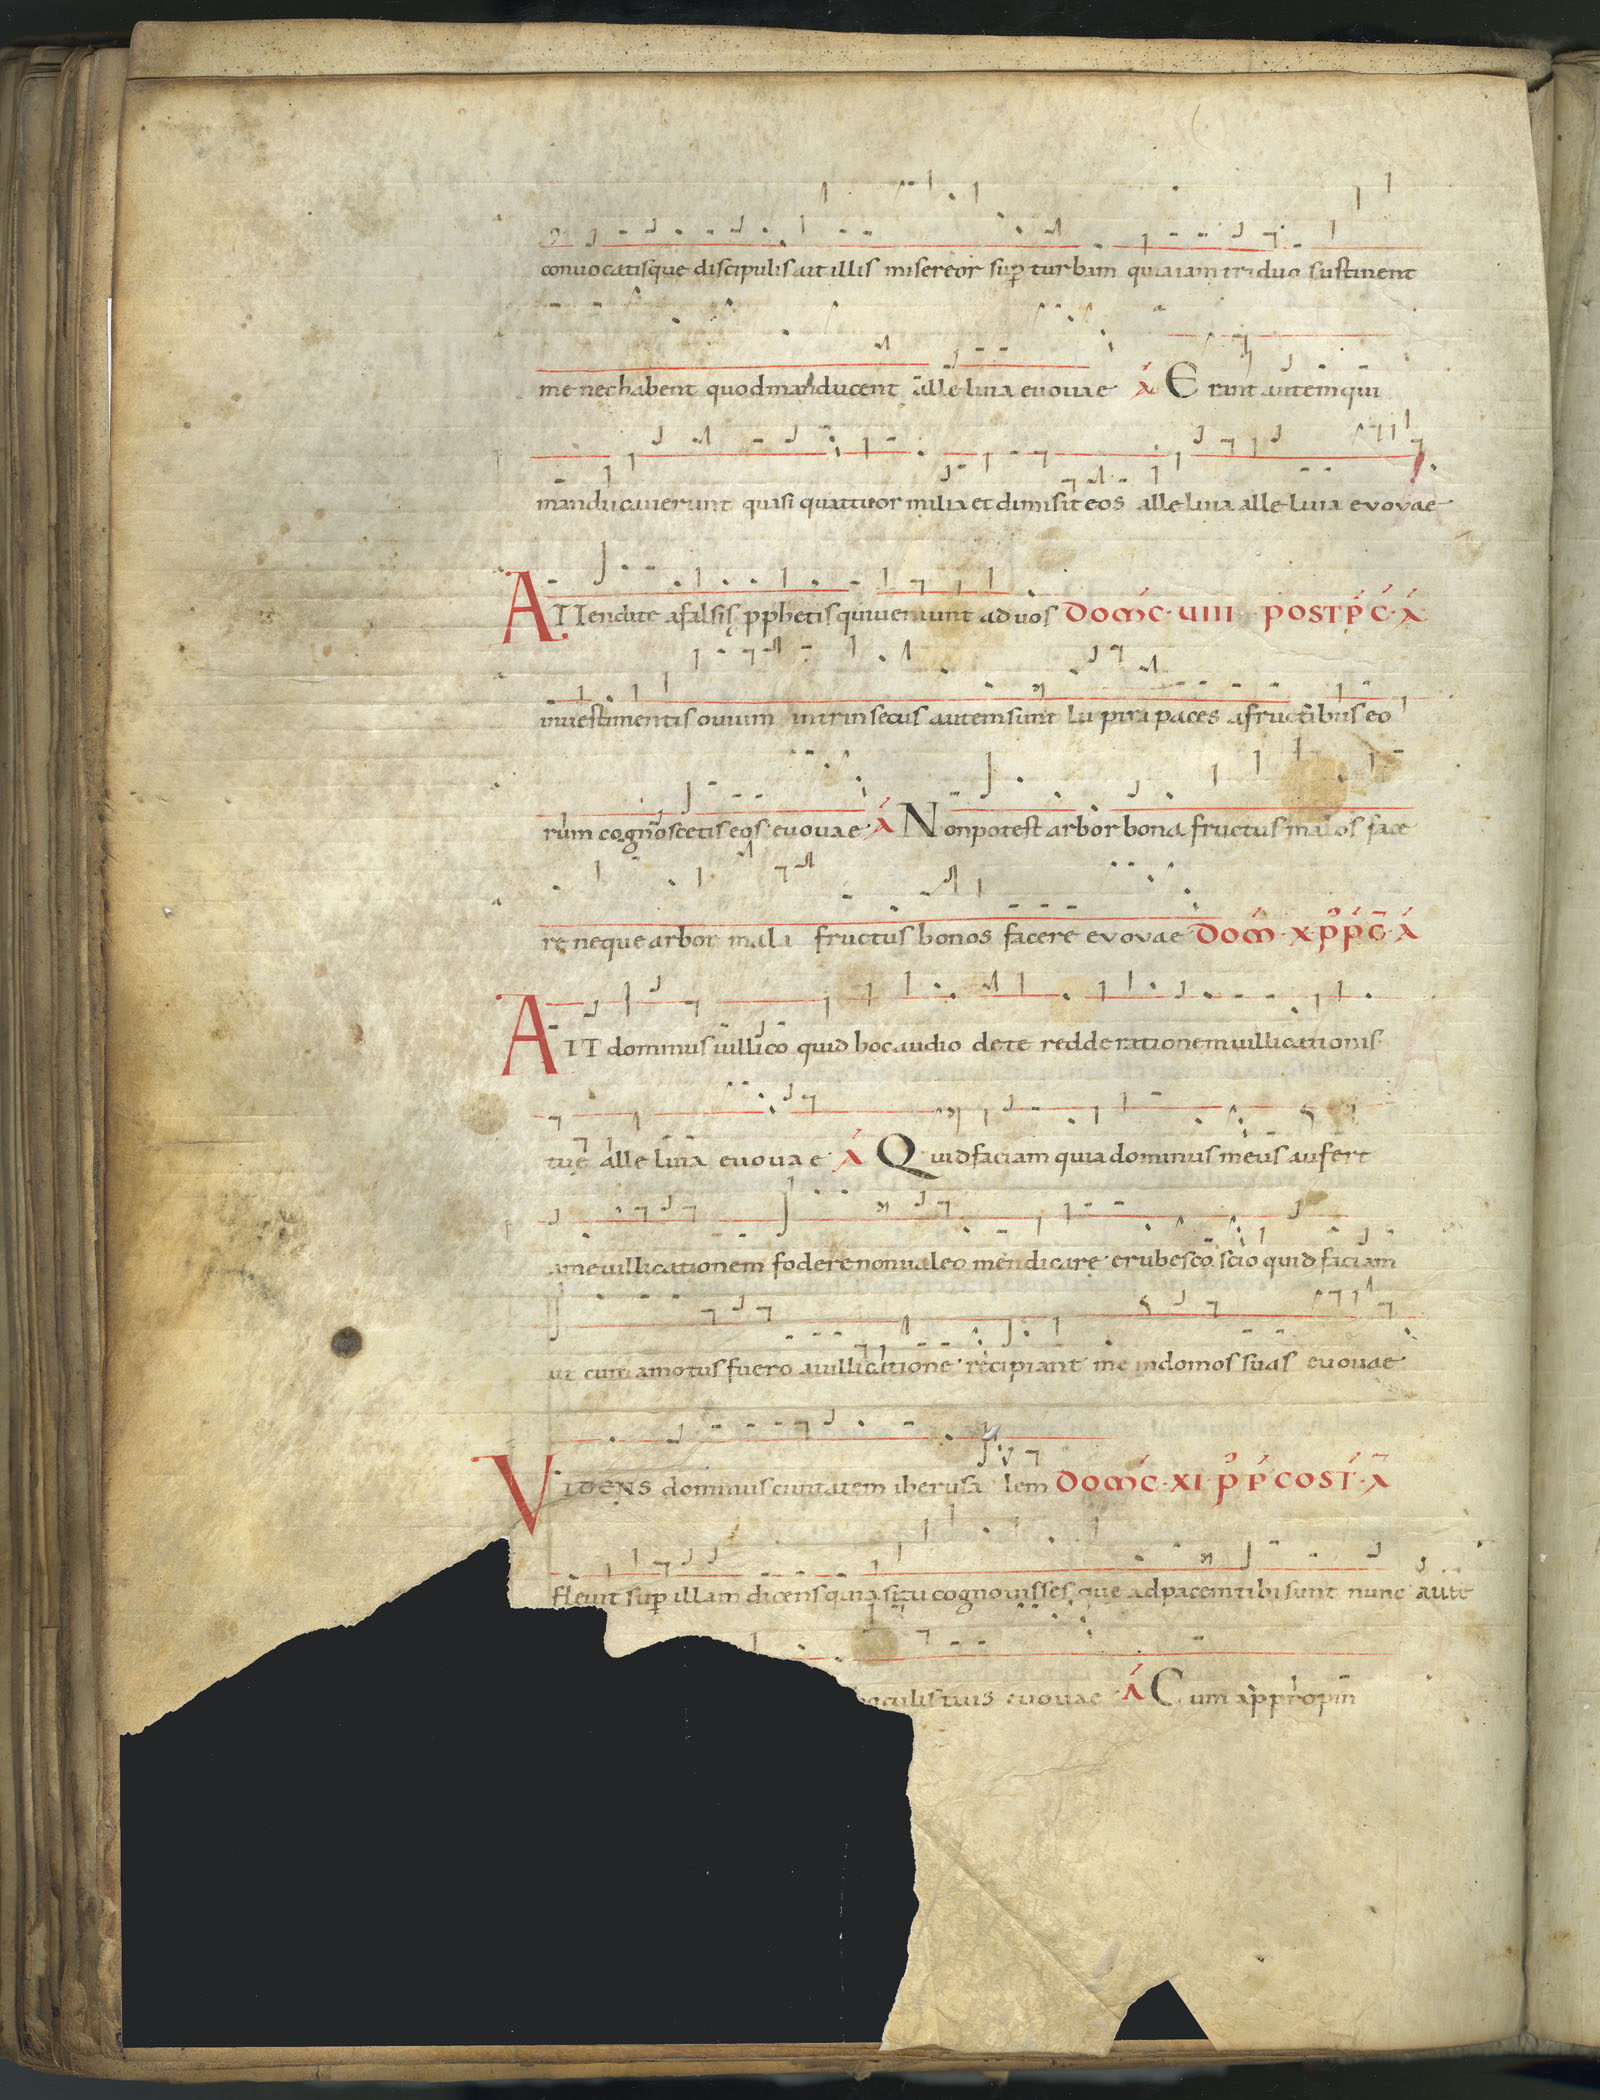 conuocatisque discipulis ait illis misereor sup̄ turbam quia iam triduo sustinent
me nec habent quod manducent alleluia euouae A̅ Erant autem qui
manducauerunt quasi quattuor milia et dimisit eos alleluia alleluia evovae
ATTendite a falsis p̱phetis qui ueniunt ad uos DOM̅C · UIII POST P̅ C̅ · A̅
in uestimentis ouium intrinsecus autem sunt lupi rapaces a fructibus eo
rum cognoscetis eos · euouae · A̅ Non potest arbor bona fructus malos face
re neque arbor mala fructus bonos facere evovae DOM̅ · X · P̅ P̅ C̅ · A̅
AIT dominus uillico quid hoc audio de te redde rationem uillicationis
tuę alleluia euouae A̅ Quid faciam quia dominus meus aufert
a me uillicationem fodere non ualeo mendicare erubesco scio quid faciam
ut cum amotus fuero a uillicatione recipiant me in domos suas euouae
VIDENS dominus ciuitatem iherusalem DOM̅C · XI · P̅ P̅ COST̅ · A̅
fleuit sup̄ illam dicens quia si tu cognouisses que ad pacem tibi sunt nunc aute
oculis tuis euouae · A̅ Cum appropin